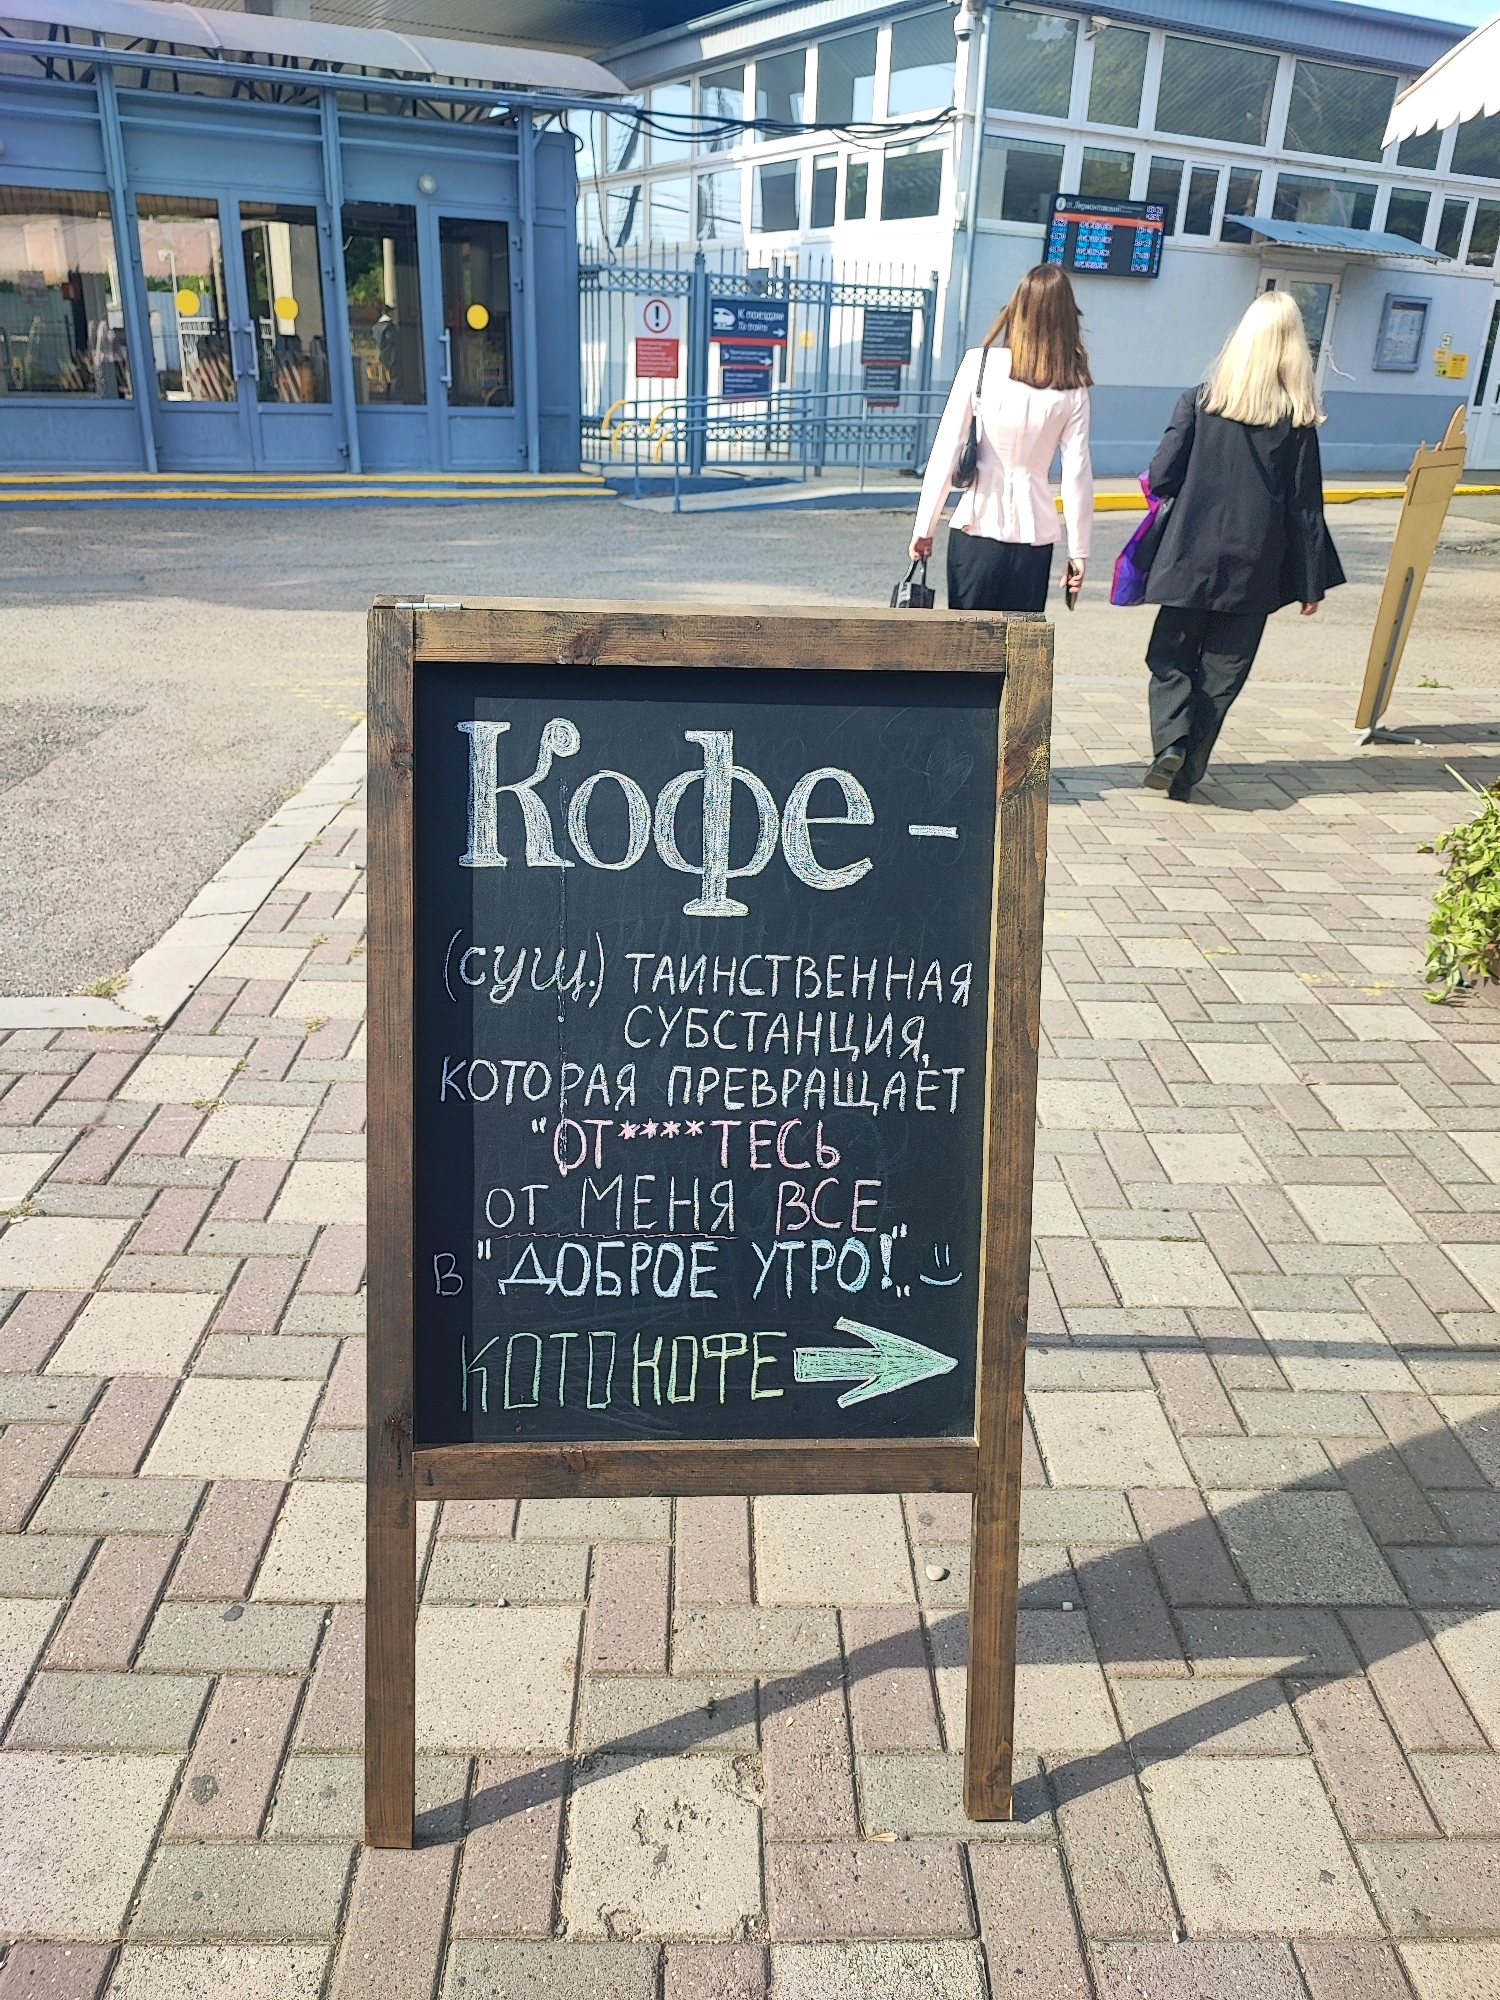 К поездам
To trains
Кофе -
(сущ.) ТАИНСТВЕННАЯ
СУБСТАНЦИЯ,
КОТОРАЯ ПРЕВРАЩАЕТ
"ОТ****ТЕСЬ
ОТ МЕНЯ ВСЕ"
В "ДОБРОЕ УТРО!"
КОТОКОФЕ